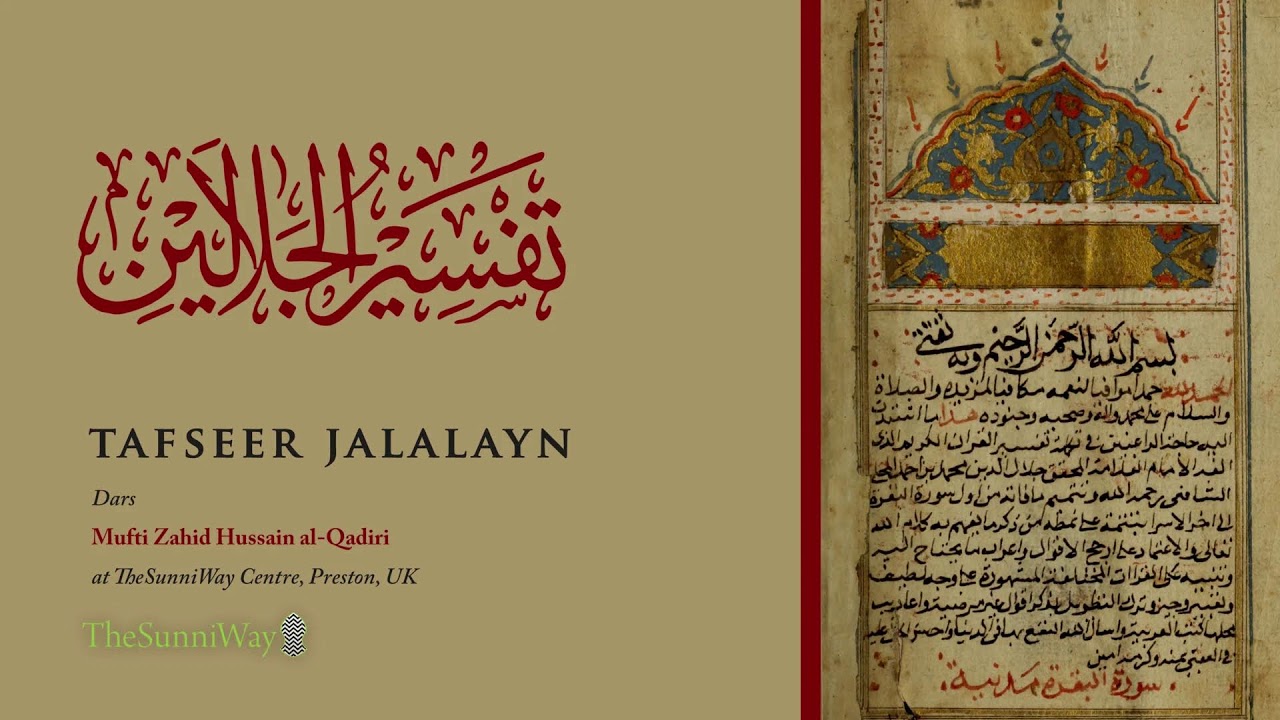 تَفْسِيرُ الْجَلَالَيْنِ
TAFSEER JALALAYN
Dars
Mufti Zahid Hussain al-Qadiri
at TheSunniWay Centre, Preston, UK
TheSunniWay
بسم الله الرحمن الرحيم وبه ثقتي
الحمد لله حمدا موافيا لنعمه مكافيا لمزيده والصلاة
والسلام على محمد واله وصحبه وجنوده هذا ما اشتدت
اليه حاجة الراغبين في تفسير القران الكريم الذي
الفه الامام العلامة المحقق جلال الدين محمد بن احمد المحلي
الشافعي رحمه الله وتتميم ما فاته من اول سورة البقرة
الى اخر الاسرا بتتمة على نمطه من ذكر ما يفهم به كلام الله
تعالى والاعتماد على ارجح الاقوال واعراب ما يحتاج اليه
وتنبيه على القراات المختلفة المشهورة على وجه لطيف
وتعبير وجيز وترك التطويل بذكر اقوال غير مرضية واعاريب
محلها كتب العربية واسال الله النفع به في الدنيا واحسن الجزا عليه
في العقبى بمنه وكرمه امين
سورة البقرة مدنية